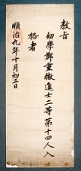 教旨
幼學鄭重徽進士二等第十四人入
格者
順治九年十月初三日